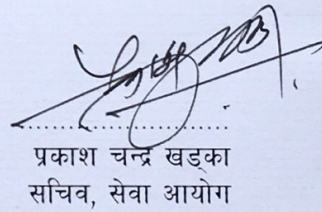 प्रकाश चन्द्र खड्का
सचिव, सेवा आयोग